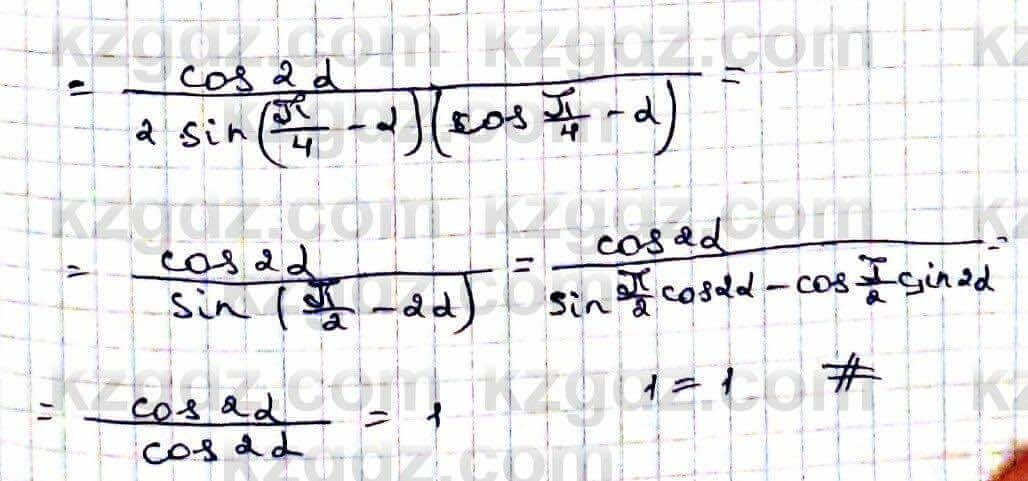 kzgdz.com kzgdz.com kz
= cos 2α / 2 sin(π/4 - α)(cos π/4 - α) =
kzgdz.com kzgdz.com kz
= cos 2α / sin(π/2 - 2α) = cos 2α / sin π/2 cos 2α - cos π/2 sin 2α =
kzgdz.com kzgdz.com kz
= cos 2α / cos 2α = 1 1 = 1 #